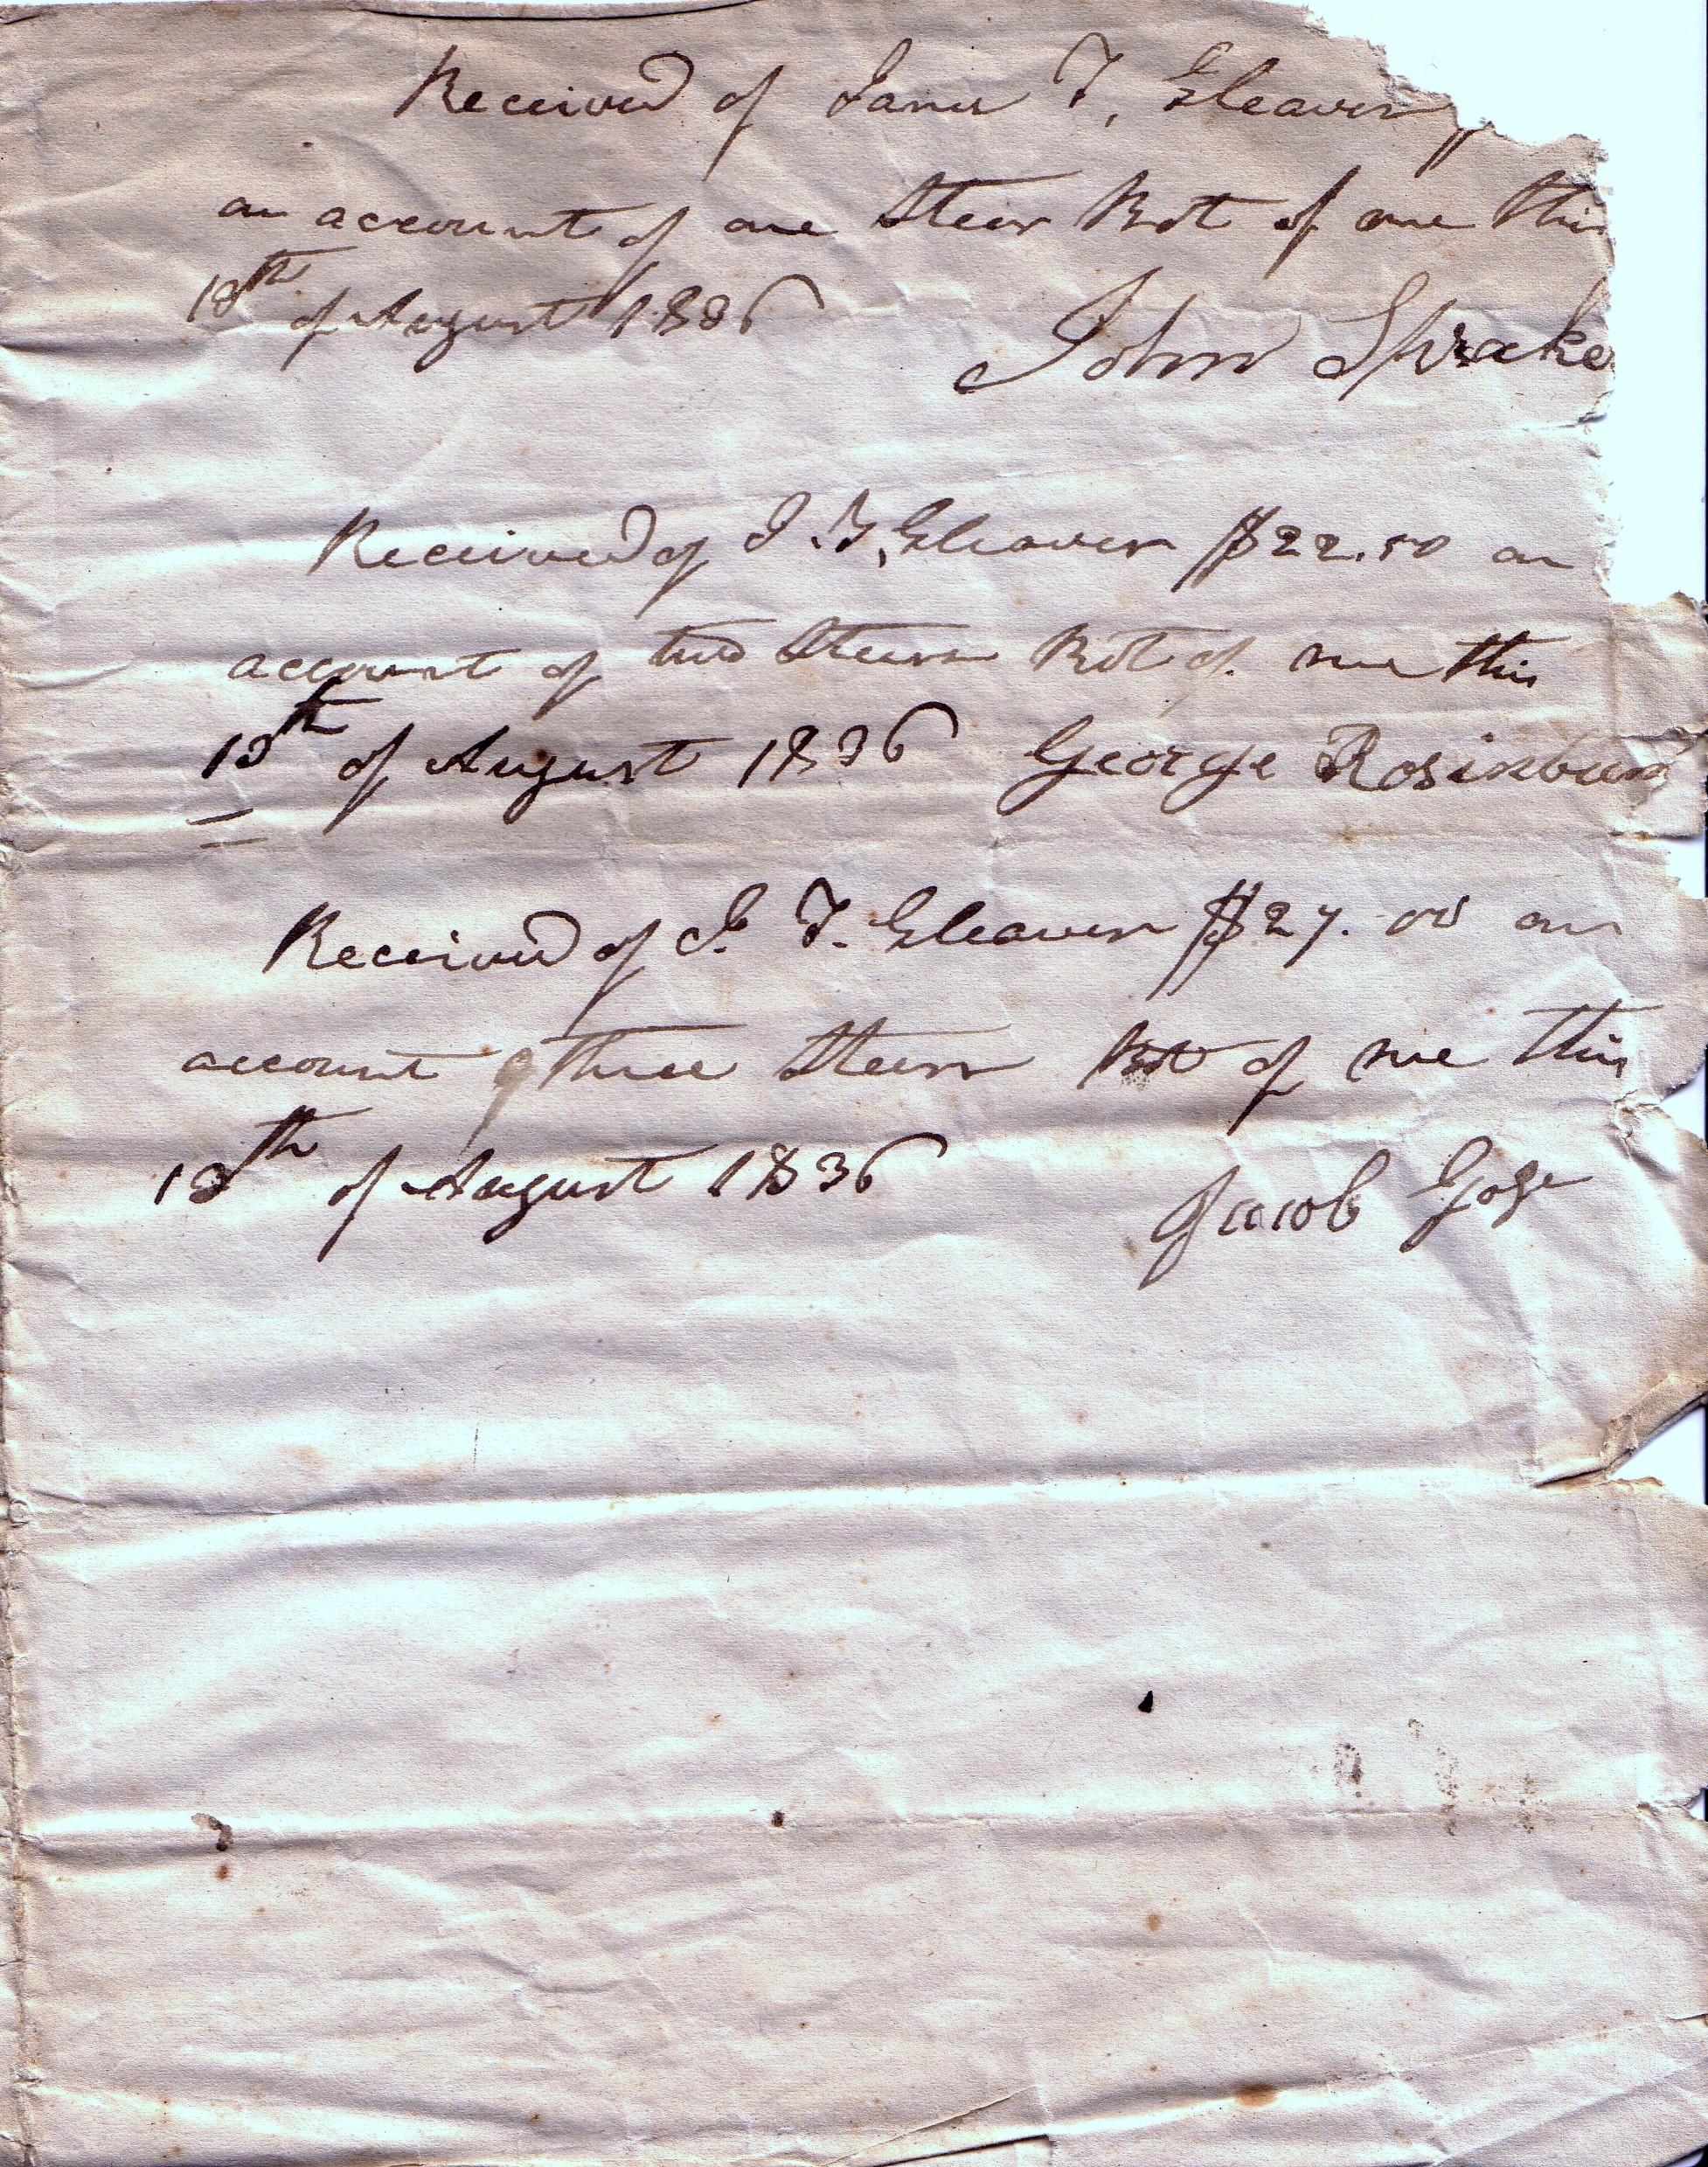 Received of James T, Gleaven
on account of one Steer Bot of me this
13th of August 1836
John Sprake
Received of J. T, Gleaven $22.50 on
account of two Steers Bot of me this
13th of August 1836 George Rosinbum
Received of J. T. Gleaven $27.00 on
account of Three Steers Bot of me this
13th of August 1836
Jacob